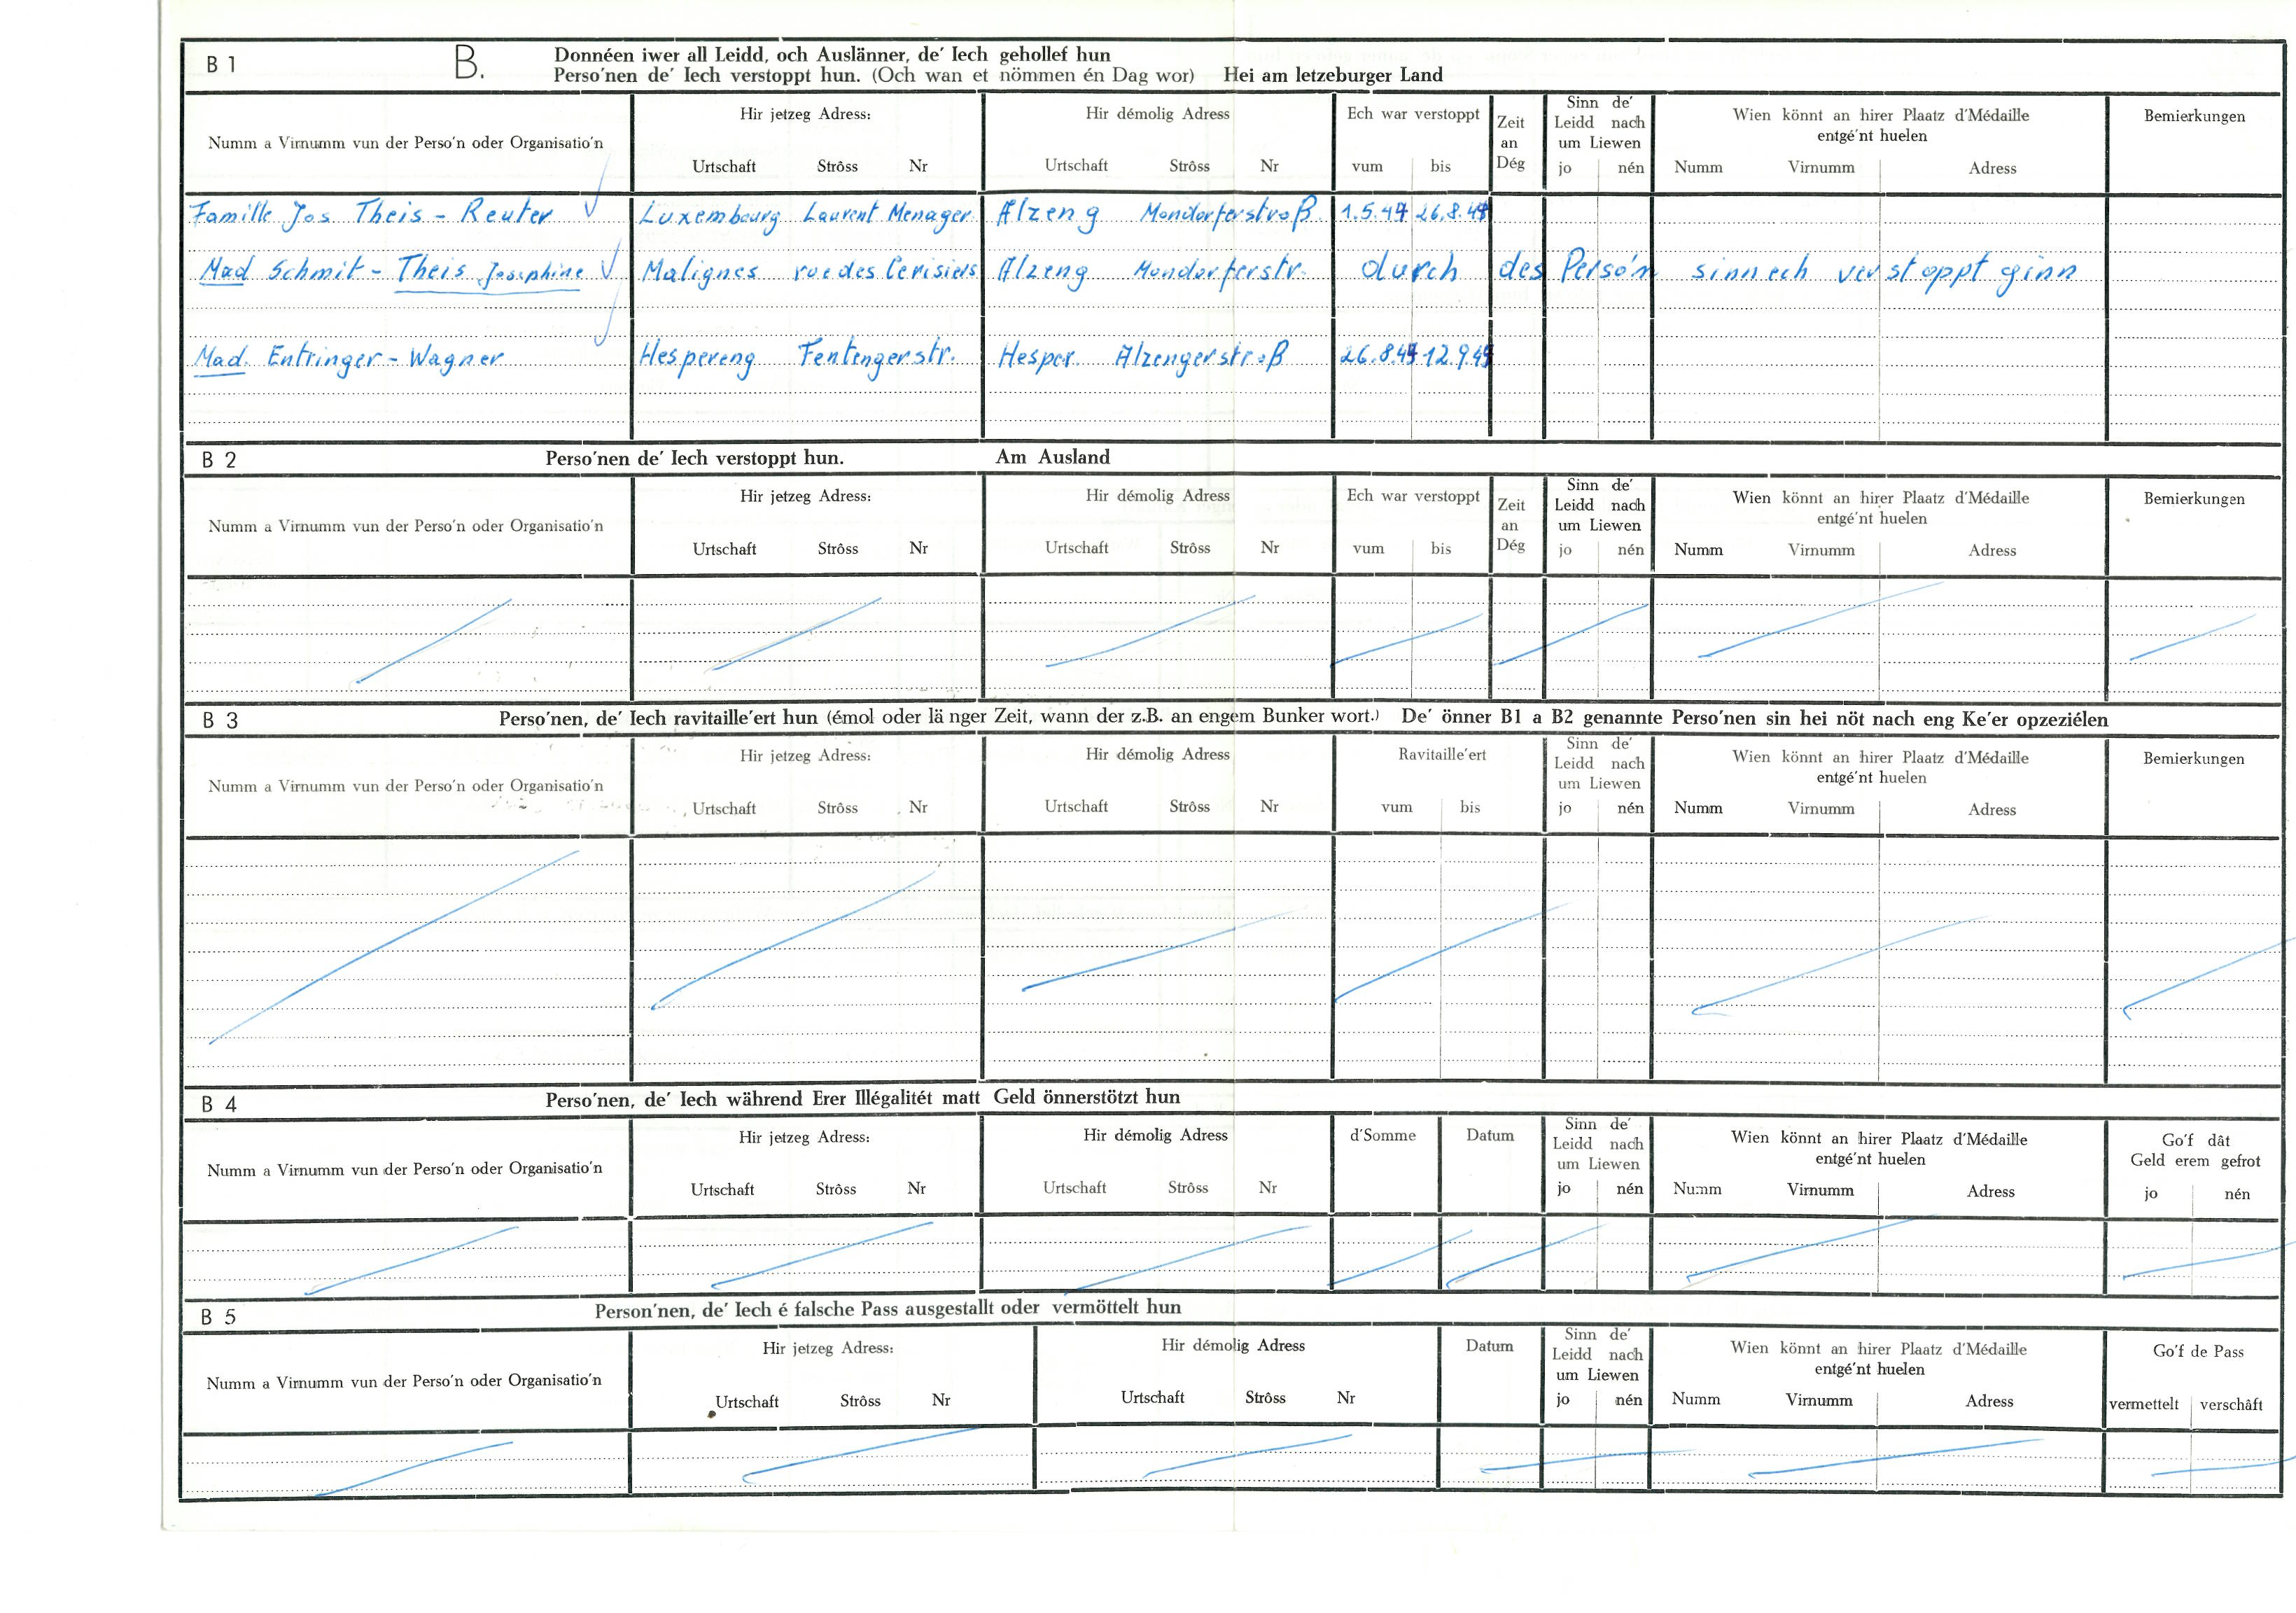 B 1 B. Donnéen iwer all Leidd, och Auslänner, de′ Iech gehollef hun
Perso′nen de′ Iech verstoppt hun. (Och wan et nömmen én Dag wor) Hei am letzeburger Land
Numm a Virnumm vun der Perso′n oder Organisatio′n
Hir jetzeg Adress:
Urtschaft Strôss Nr
Hir démolig Adress
Urtschaft Strôss Nr
Ech war verstoppt
vum bis
Zeit
an
Dég
Sinn de′
Leidd nach
um Liewen
jo nén
Wien könnt an hirer Plaatz d′Médaille
entgé′nt huelen
Numm Virnumm Adress
Bemierkungen
Famille Jos Theis - Reuter Luxembourg Laurent Menager Alzeng Mondorferstroß 1.5.44 26.8.44
Mad Schmit - Theis Josephine Malignes rue des Cerisiers Alzeng Mondorferstr. durch des Perso′n sinn ech verstoppt ginn
Mad. Entringer - Wagner Hespereng Fentengerstr. Hesper Alzengerstroß 26.8.44 12.9.44
B 2 Perso′nen de′ Iech verstoppt hun. Am Ausland
Numm a Virnumm vun der Perso′n oder Organisatio′n
Hir jetzeg Adress:
Urtschaft Strôss Nr
Hir démolig Adress
Urtschaft Strôss Nr
Ech war verstoppt
vum bis
Zeit
an
Dég
Sinn de′
Leidd nach
um Liewen
jo nén
Wien könnt an hirer Plaatz d′Médaille
entgé′nt huelen
Numm Virnumm Adress
Bemierkungen
B 3 Perso′nen, de′ Iech ravitaille′ert hun (émol oder länger Zeit, wann der z.B. an engem Bunker wort.) De′ önner B1 a B2 genannte Perso′nen sin hei nöt nach eng Ke′er opzeziélen
Numm a Virnumm vun der Perso′n oder Organisatio′n
Hir jetzeg Adress:
Urtschaft Strôss Nr
Hir démolig Adress
Urtschaft Strôss Nr
Ravitaille′ert
vum bis
Sinn de′
Leidd nach
um Liewen
jo nén
Wien könnt an hirer Plaatz d′Médaille
entgé′nt huelen
Numm Virnumm Adress
Bemierkungen
B 4 Perso′nen, de′ Iech während Erer Illégalitét matt Geld önnerstötzt hun
Numm a Virnumm vun der Perso′n oder Organisatio′n
Hir jetzeg Adress:
Urtschaft Strôss Nr
Hir démolig Adress
Urtschaft Strôss Nr
d′Somme
Datum
Sinn de′
Leidd nach
um Liewen
jo nén
Wien könnt an hirer Plaatz d′Médaille
entgé′nt huelen
Numm Virnumm Adress
Go′f dât
Geld erem gefrot
jo nén
B 5 Person′nen, de′ Iech é falsche Pass ausgestallt oder vermöttelt hun
Numm a Virnumm vun der Perso′n oder Organisatio′n
Hir jetzeg Adress:
Urtschaft Strôss Nr
Hir démolig Adress
Urtschaft Strôss Nr
Datum
Sinn de′
Leidd nach
um Liewen
jo nén
Wien könnt an hirer Plaatz d′Médaille
entgé′nt huelen
Numm Virnumm Adress
Go′f de Pass
vermettelt verschâft